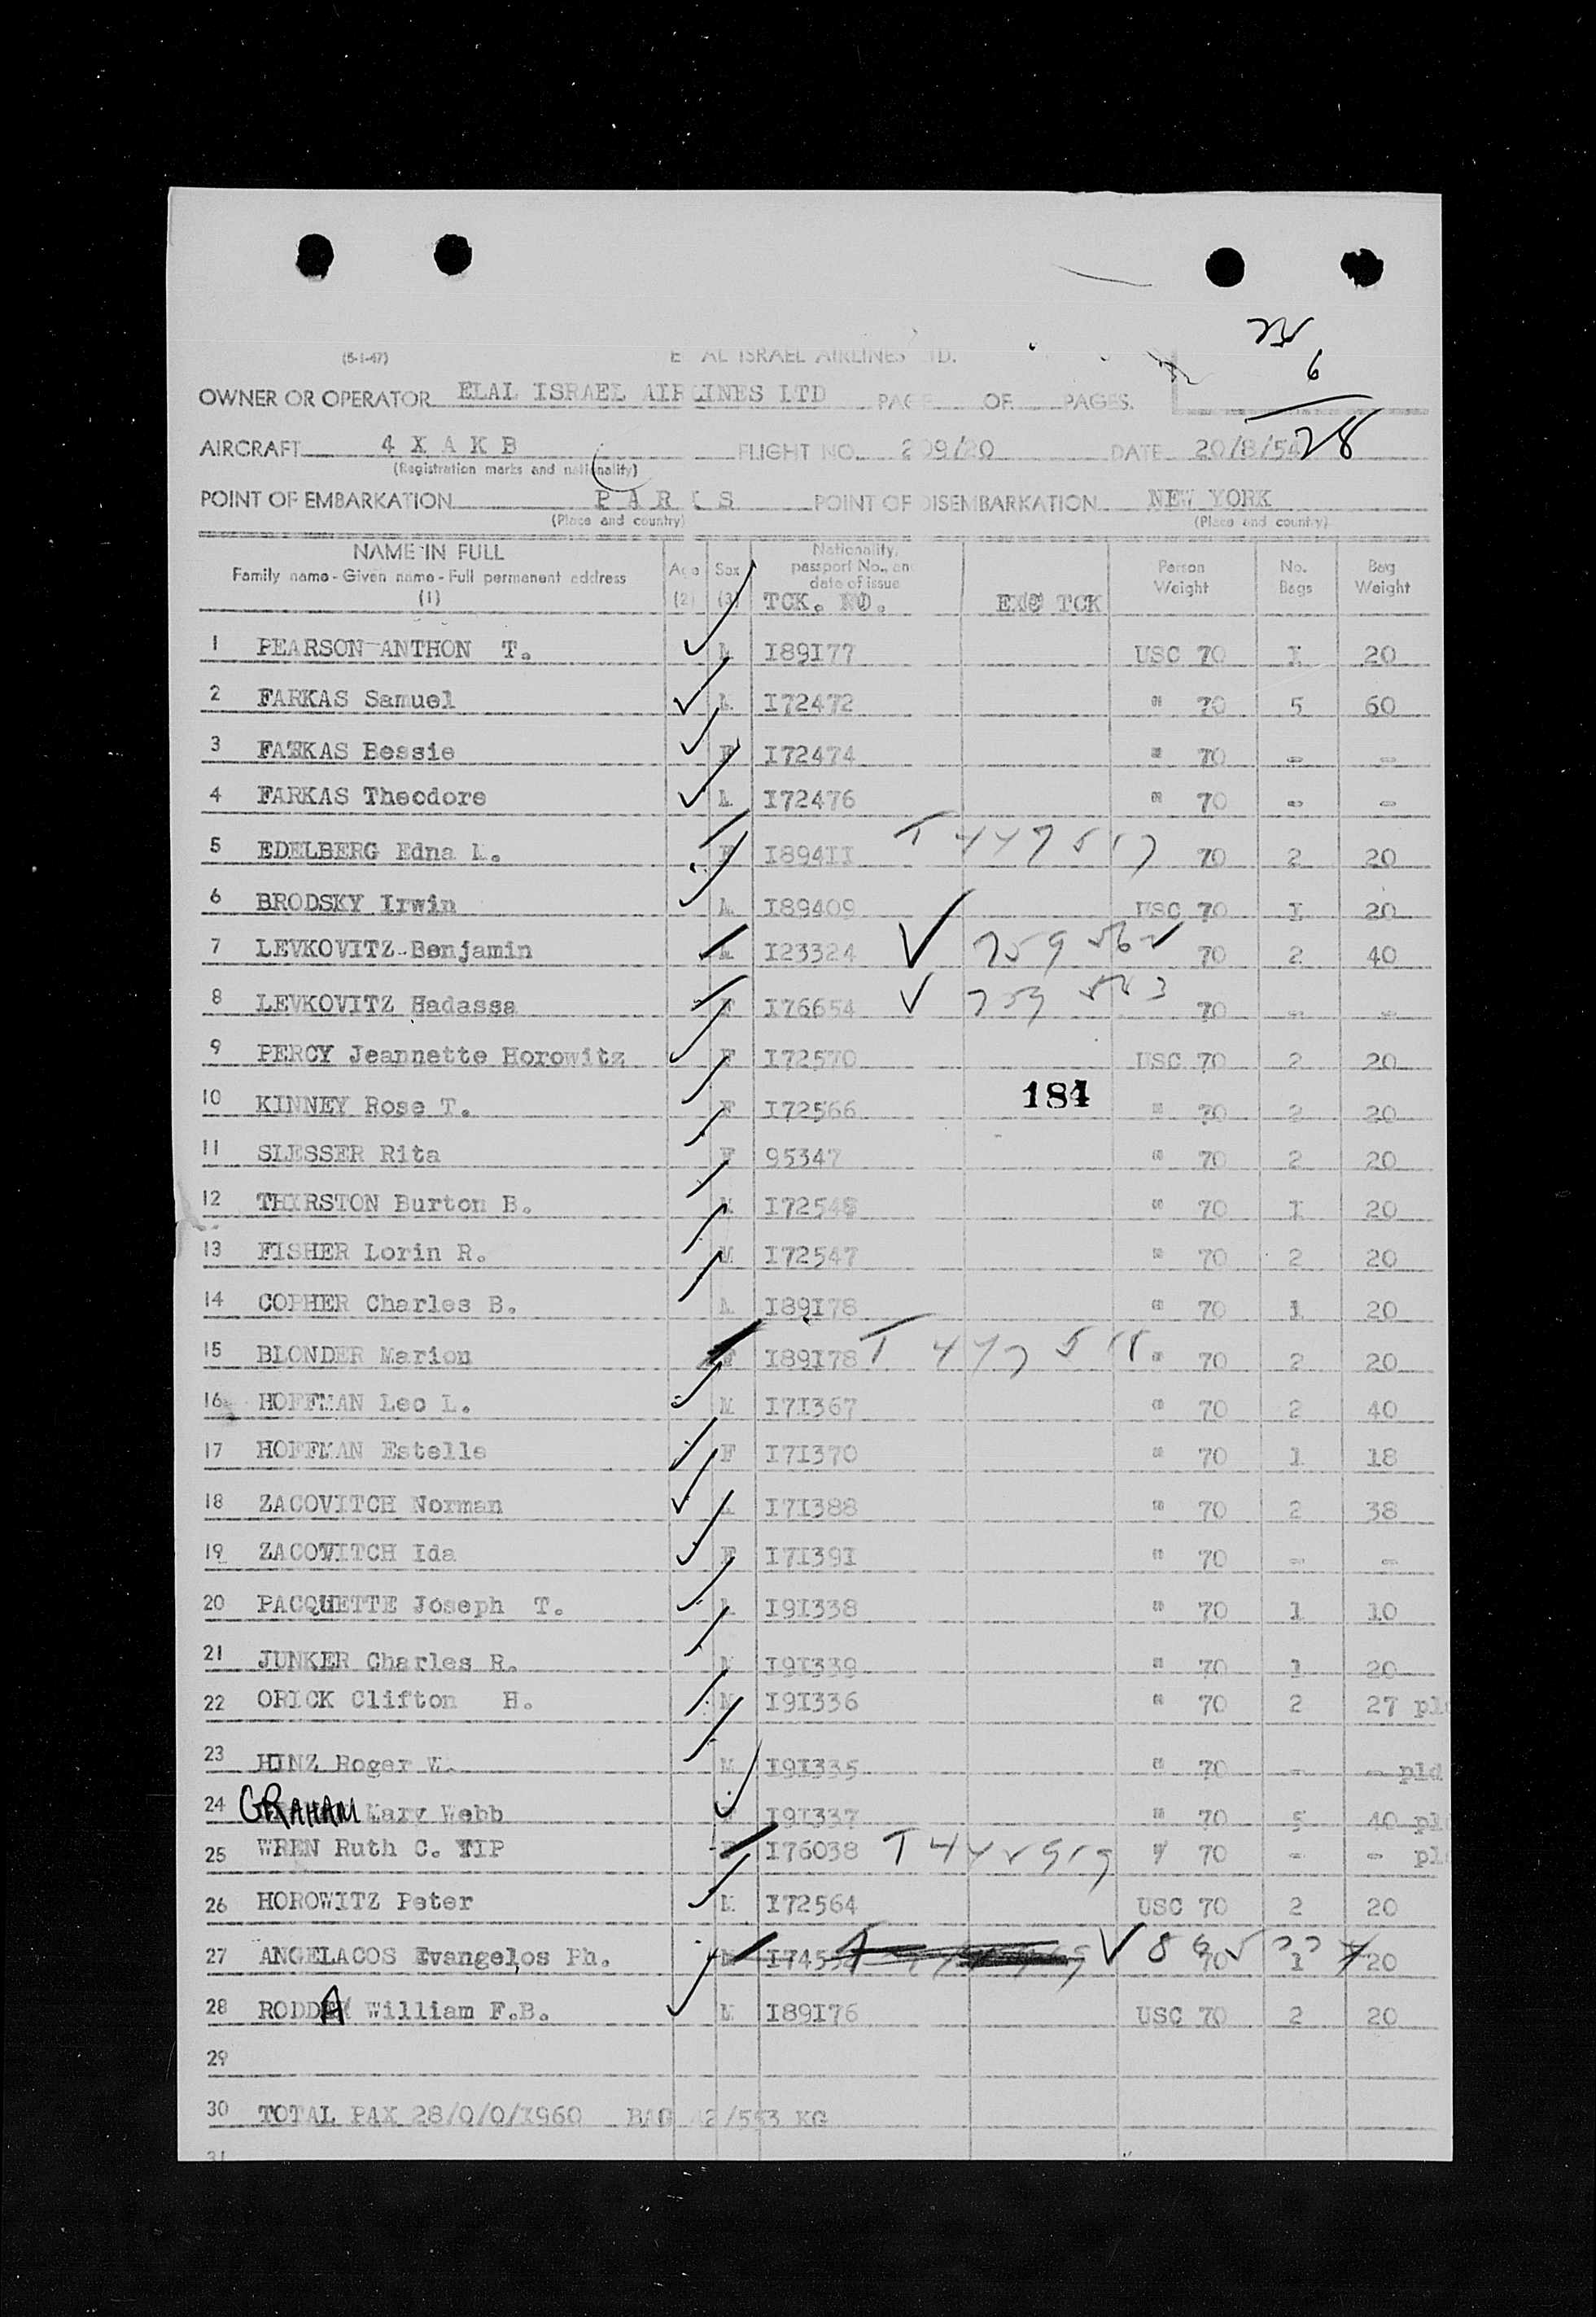 (5-1-47) EL AL ISRAEL AIRLINES LTD.
6
OWNER OR OPERATOR ELAL ISRAEL AIRLINES LTD PAGE OF PAGES.
28
AIRCRAFT 4 X A K B FLIGHT NO. 209/20 DATE 20/8/54
(Registration marks and nationality)
POINT OF EMBARKATION P A R I S POINT OF DISEMBARKATION NEW YORK
(Place and country) (Place and country)
NAME IN FULL Age Sex Nationality, passport No., and date of issue Person Weight No. Bags Bag Weight
Family name - Given name - Full permanent address
(1) (2) (3) TCK. NO. EXC TCK
1 PEARSON ANTHON T. M I89I77 USC 70 I 20
2 FARKAS Samuel M I72472 " 70 5 60
3 FARKAS Bessie F I72474 " 70 - -
4 FARKAS Theodore M I72476 " 70 - -
5 EDELBERG Edna M. F I894II T 447517 70 2 20
6 BRODSKY Irwin M I89409 USC 70 I 20
7 LEVKOVITZ Benjamin M I23324 V 759562 70 2 40
8 LEVKOVITZ Hadassa F I76654 V 759563 70 - -
9 PERCY Jeannette Horowitz F I72570 USC 70 2 20
184
10 KINNEY Rose T. F I72566 " 70 2 20
11 SLESSER Rita F 95347 " 70 2 20
12 THIRSTON Burton B. M I72548 " 70 I 20
13 FISHER Lorin R. M I72547 " 70 2 20
14 COPHER Charles B. M I89I78 " 70 1 20
15 BLONDER Marion F I89I78 T 447518 " 70 2 20
16 HOFFMAN Leo L. M I7I367 " 70 2 40
17 HOFFMAN Estelle F I7I370 " 70 1 18
18 ZACOVITCH Norman M I7I388 " 70 2 38
19 ZACOVITCH Ida F I7I39I " 70 - -
20 PACQUETTE Joseph T. M I9I338 " 70 1 10
21 JUNKER Charles R. M I9I339 " 70 1 20
22 ORICK Clifton H. M I9I336 " 70 2 27 pld
23 HINZ Roger W. M I9I335 " 70 - - pld
24 GRAHAM Mary Webb F I9I337 " 70 5 40 pl
25 WREN Ruth C. TIP F I76038 " 70 - - pl
26 HOROWITZ Peter M I72564 USC 70 2 20
27 ANGELACOS Evangelos Ph. M 70 1 20
28 RODDA William F.B. M I89I76 USC 70 2 20
29
30 TOTAL PAX 28/0/0/I960 BAG 42/553 KG
31